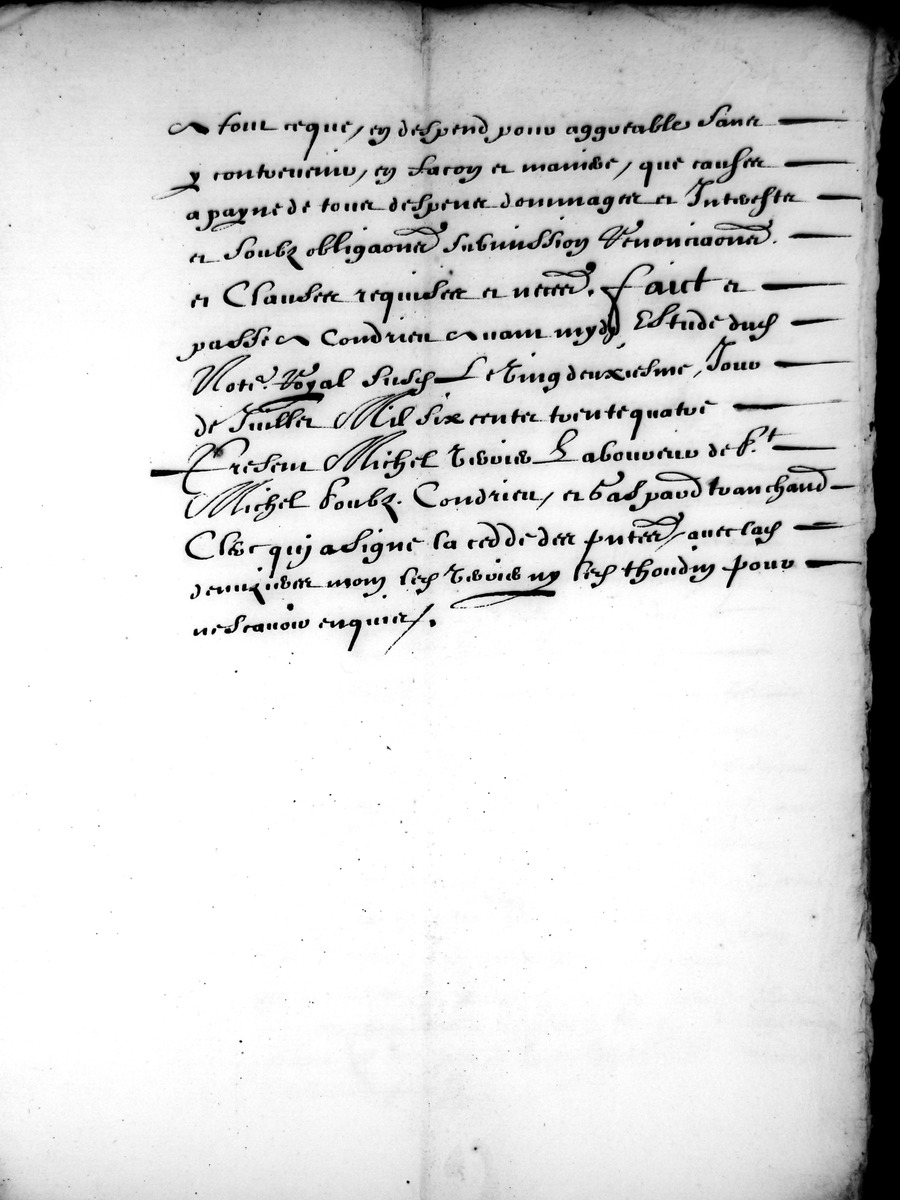 & tout ceque, en despend pour aggreable sans
y contrevenir, en facon et maniere, que causer
a payne de tous despens dommages et Interestz
et soubz obligaons submission Renonciaons.
et Clauses requises et necess. faict et
passe a Condrieu avant mydy Estude dud
Note. Royal susd Le vingdeuxiesme, Jour
de Juillet Mil six centz trente quatre
Present Michel Laboureur de St
Michel soubz. Condrieu, et Gaspard tranchand
Clerc quj a signe la cedde des pntes, avec lad
moin lesd ny lesd thoudin pour
ne scavoir enquis.